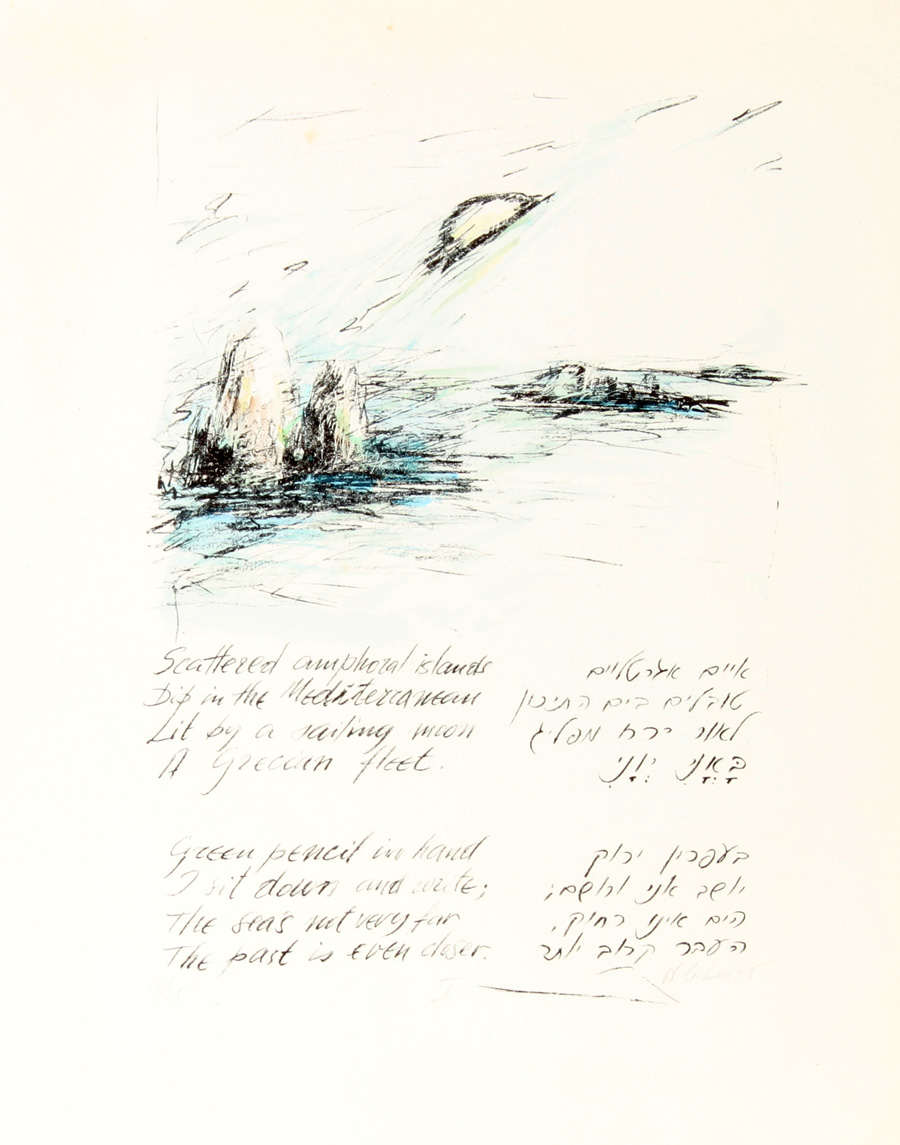 Scattered amphoral islands
Dip in the Mediterranean
Lit by a sailing moon
A Grecian fleet.
Green pencil in hand
I sit down and write;
The sea's not very far
The past is even closer.
איים
טובלים בים התיכון
לאור ירח מפליג
בָּאֳנִי יְוָנִי
בעפרון ירוק
יושב אני ורושם;
הים אינו רחוק,
העבר קרוב יותר
I